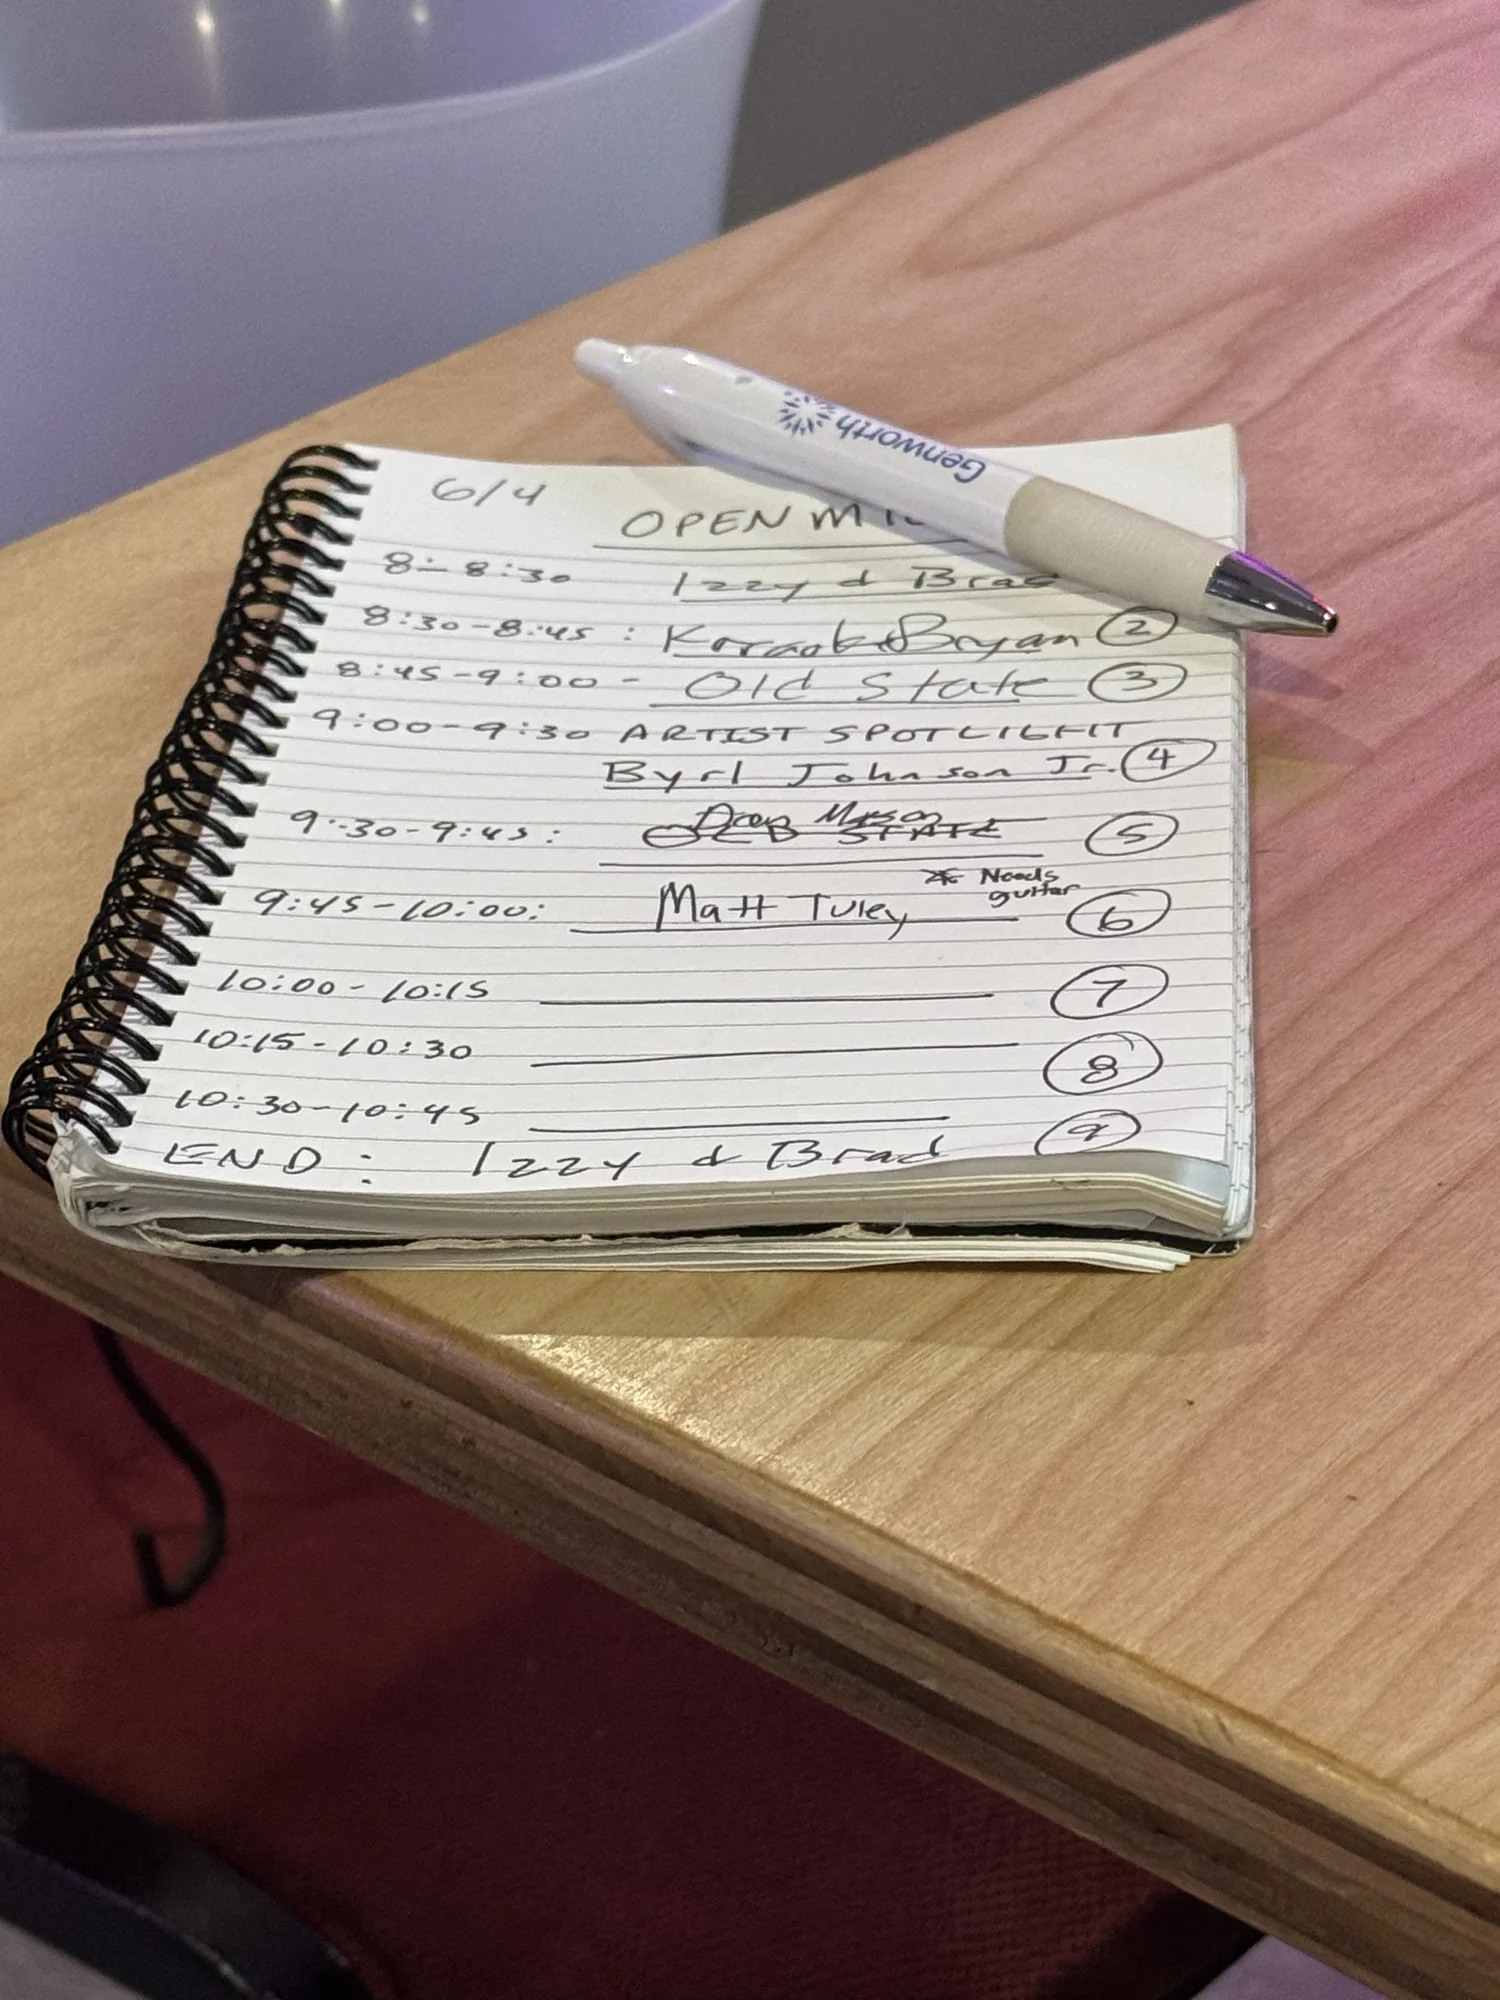 Genworth
6/4
OPEN MIC
8:- 8:30 Izzy & Brad
8:30-8:45 : Karaoke Bryan 2
8:45-9:00 - Old State 3
9:00-9:30 ARTIST SPOTLIGHT
Byrl Johnson Jr. 4
9:30-9:45: Mason OLD STATE 5
* Needs
guitar
9:45-10:00: Matt Tuley 6
10:00-10:15 7
10:15-10:30 8
10:30-10:45 9
END: Izzy & Brad